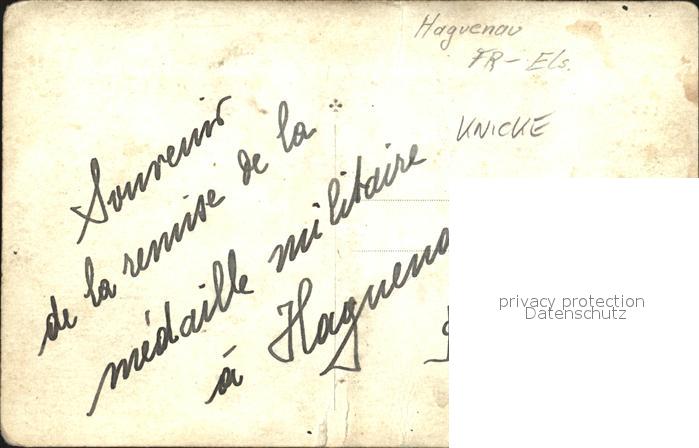 Haguenau
FR - Els.
KNICKE
Souvenir
de la remise de la
médaille militaire
à Haguena
privacy protection
Datenschutz